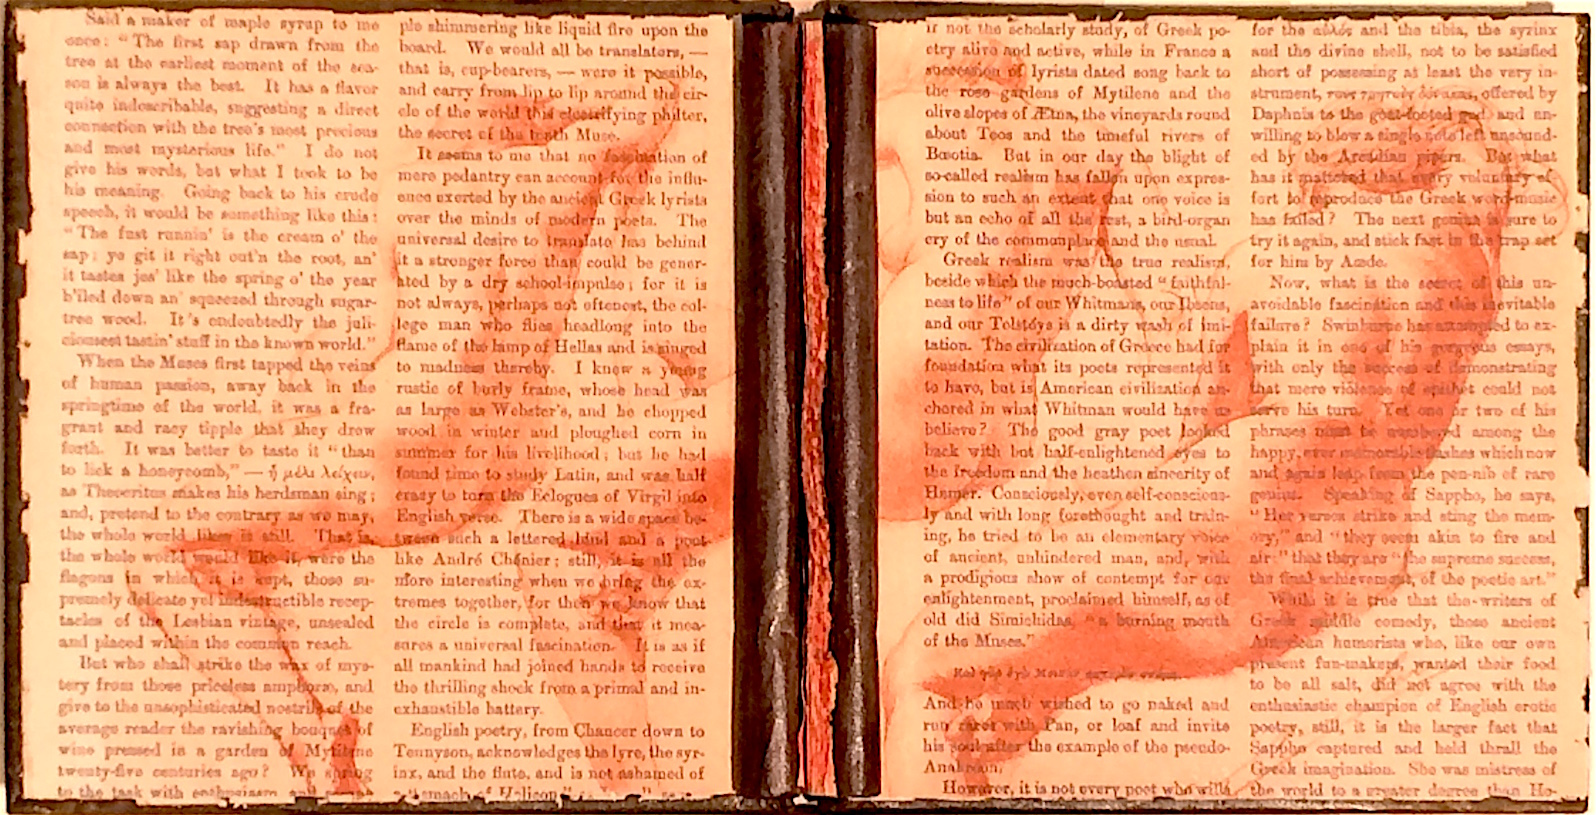 Said a maker of maple syrup to me
once: "The first sap drawn from the
tree at the earliest moment of the sea-
son is always the best. It has a flavor
quite indescribable, suggesting a direct
connection with the tree's most precious
and most mysterious life." I do not
give his words, but what I took to be
his meaning. Going back to his crude
speech, it would be something like this:
"The fust runnin' is the cream o' the
sap; ye git it right out'n the root, an'
it tastes jes' like the spring o' the year
b'iled down an' squeezed through sugar-
tree wood. It's ondoubtedly the juli-
ciousest tastin' stuff in the known world."
When the Muses first tapped the veins
of human passion, away back in the
springtime of the world, it was a fra-
grant and racy tipple that they drew
forth. It was better to taste it "than
to lick a honeycomb," — ἢ μέλι λείχειν,
as Theocritus makes his herdsman sing;
and, pretend to the contrary as we may,
the whole world likes it still. That is,
the whole world would like it, were the
flagons in which it is kept, those su-
premely delicate yet indestructible recep-
tacles of the Lesbian vintage, unsealed
and placed within the common reach.
But who shall strike the wax of mys-
tery from those priceless amphoræ, and
give to the unsophisticated nostrils of the
average reader the ravishing bouquet of
wine pressed in a garden of Mytilene
twenty-five centuries ago? We spring
to the task with enthusiasm and
ple shimmering like liquid fire upon the
board. We would all be translators, —
that is, cup-bearers, — were it possible,
and carry from lip to lip around the cir-
cle of the world this electrifying philter,
the secret of the tenth Muse.
It seems to me that no fascination of
mere pedantry can account for the influ-
ence exerted by the ancient Greek lyrists
over the minds of modern poets. The
universal desire to translate has behind
it a stronger force than could be gener-
ated by a dry school-impulse; for it is
not always, perhaps not oftenest, the col-
lege man who flies headlong into the
flame of the lamp of Hellas and is singed
to madness thereby. I know a young
rustic of burly frame, whose head was
as large as Webster's, and he chopped
wood in winter and ploughed corn in
summer for his livelihood; but he had
found time to study Latin, and was half
crazy to turn the Eclogues of Virgil into
English verse. There is a wide space be-
tween such a lettered hind and a poet
like André Chénier; still, it is all the
more interesting when we bring the ex-
tremes together, for then we know that
the circle is complete, and that it mea-
sures a universal fascination. It is as if
all mankind had joined hands to receive
the thrilling shock from a primal and in-
exhaustible battery.
English poetry, from Chaucer down to
Tennyson, acknowledges the lyre, the syr-
inx, and the flute, and is not ashamed of
of Helicon"
if not the scholarly study, of Greek po-
etry alive and active, while in France a
succession of lyrists dated song back to
the rose gardens of Mytilene and the
olive slopes of Ætna, the vineyards round
about Teos and the tuneful rivers of
Bœotia. But in our day the blight of
so-called realism has fallen upon expres-
sion to such an extent that one voice is
but an echo of all the rest, a bird-organ
cry of the commonplace and the usual.
Greek realism was the true realism,
beside which the much-boasted "faithful-
ness to life" of our Whitmans, our Ibsens,
and our Tolstóys is a dirty wash of imi-
tation. The civilization of Greece had for
foundation what its poets represented it
to have, but is American civilization an-
chored in what Whitman would have us
believe? The good gray poet looked
back with but half-enlightened eyes to
the freedom and the heathen sincerity of
Homer. Consciously, even self-conscious-
ly and with long forethought and train-
ing, he tried to be an elementary voice
of ancient, unhindered man, and, with
a prodigious show of contempt for our
enlightenment, proclaimed himself, as of
old did Simichidas, "a burning mouth
of the Muses."
Καὶ γὰρ ἐγὼ
And he much wished to go naked and
run races with Pan, or loaf and invite
his soul after the example of the pseudo-
Anakreon.
However, it is not every poet who wills
for the αὐλός and the tibia, the syrinx
and the divine shell, not to be satisfied
short of possessing at least the very in-
strument, offered by
Daphnis to the goat-footed god and un-
willing to blow a single note left unsound-
ed by the Arcadian pipers. But what
has it mattered that every voluntary ef-
fort to reproduce the Greek word-music
has failed? The next genius is sure to
try it again, and stick fast in the trap set
for him by Aœde.
Now, what is the secret of this un-
avoidable fascination and this inevitable
failure? Swinburne has attempted to ex-
plain it in one of his gorgeous essays,
with only the success of demonstrating
that mere violence of epithet could not
serve his turn. Yet one or two of his
phrases must be numbered among the
happy, ever memorable flashes which now
and again leap from the pen-nib of rare
genius. Speaking of Sappho, he says,
"Her verses strike and sting the mem-
ory," and "they seem akin to fire and
air;" that they are "the supreme success,
the final achievement, of the poetic art."
While it is true that the writers of
Greek middle comedy, those ancient
American humorists who, like our own
present fun-makers, wanted their food
to be all salt, did not agree with the
enthusiastic champion of English erotic
poetry, still, it is the larger fact that
Sappho captured and held thrall the
Greek imagination. She was mistress of
the world to a greater degree than Ho-